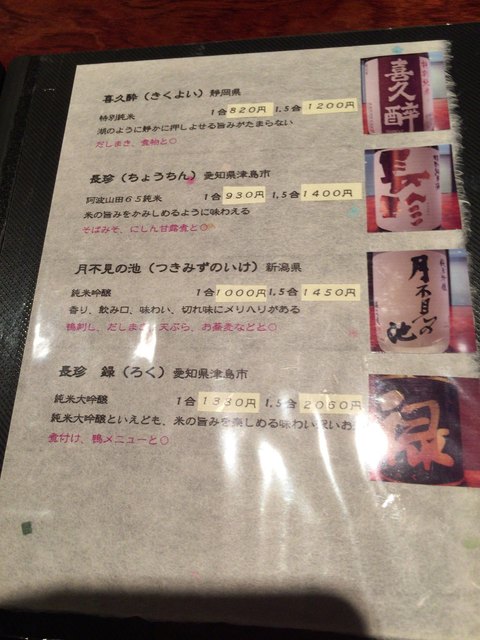 喜久酔（きくよい）静岡県
特別純米 1合820円 1.5合1200円
湖のように静かに押しよせる旨みがたまらない
だしまき、煮物と○
長珍（ちょうちん）愛知県津島市
阿波山田65純米 1合930円 1.5合1400円
米の旨みをかみしめるように味わえる
そばみそ、にしん甘露煮と○
月不見の池（つきみずのいけ）新潟県
純米吟醸 1合1000円1.5合1450円
香り、飲み口、味わい、切れ味にメリハリがある
鴨刺し、だしまき、天ぷら、お蕎麦などと○
長珍 緑（ろく）愛知県津島市
純米大吟醸 1合1330円 1.5合2060円
純米大吟醸といえども、米の旨みを楽しめる味わい
煮付け、鴨メニューと○
喜久酔
長珍
月不見の池
緑